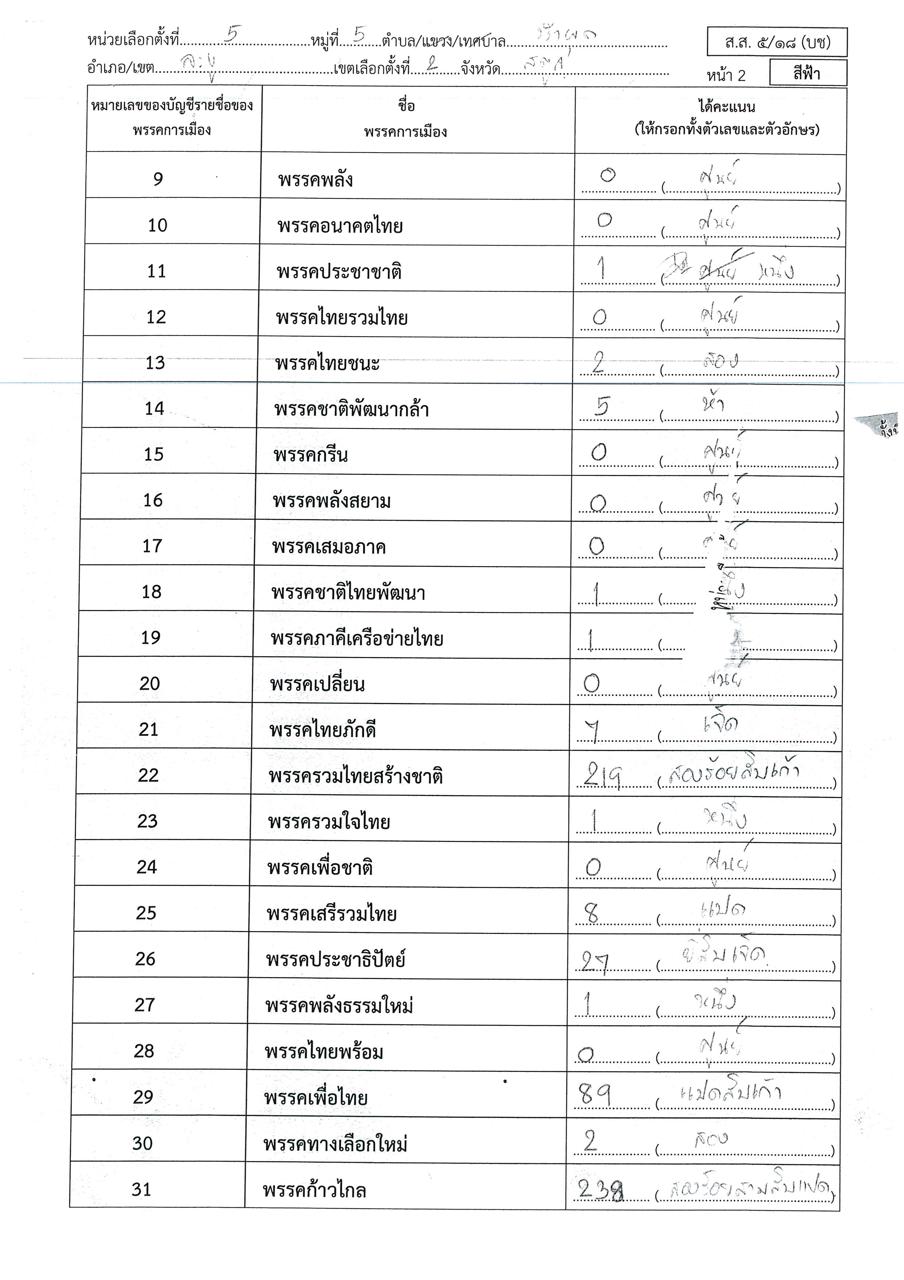 หน่วยเลือกตั้งที่ 5 หมู่ที่ 5 ตำบล/แขวง/เทศบาล
ส.ส. ๕/๑๘ (บช)
อำเภอ/เขต ละงู เขตเลือกตั้งที่ 2 จังหวัด สตูล
หน้า 2 สีฟ้า
หมายเลขของบัญชีรายชื่อของ พรรคการเมือง
ชื่อ พรรคการเมือง
ได้คะแนน (ให้กรอกทั้งตัวเลขและตัวอักษร)
9 พรรคพลัง 0 (ศูนย์)
10 พรรคอนาคตไทย 0 (ศูนย์)
11 พรรคประชาชาติ 1 (ศูนย์ หนึ่ง)
12 พรรคไทยรวมไทย 0 (ศูนย์)
13 พรรคไทยชนะ 2 (สอง)
14 พรรคชาติพัฒนากล้า 5 (ห้า)
15 พรรคกรีน 0 (ศูนย์)
16 พรรคพลังสยาม 0 (ศูนย์)
17 พรรคเสมอภาค 0 ()
18 พรรคชาติไทยพัฒนา 1 ()
19 พรรคภาคีเครือข่ายไทย 1 ()
20 พรรคเปลี่ยน 0 (ศูนย์)
21 พรรคไทยภักดี 7 (เจ็ด)
22 พรรครวมไทยสร้างชาติ 219 (สองร้อยสิบเก้า)
23 พรรครวมใจไทย 1 (หนึ่ง)
24 พรรคเพื่อชาติ 0 (ศูนย์)
25 พรรคเสรีรวมไทย 8 (แปด)
26 พรรคประชาธิปัตย์ 27 (ยี่สิบเจ็ด)
27 พรรคพลังธรรมใหม่ 1 (หนึ่ง)
28 พรรคไทยพร้อม 0 (ศูนย์)
29 พรรคเพื่อไทย 89 (แปดสิบเก้า)
30 พรรคทางเลือกใหม่ 2 (สอง)
31 พรรคก้าวไกล 238 (สองร้อยสามสิบแปด)